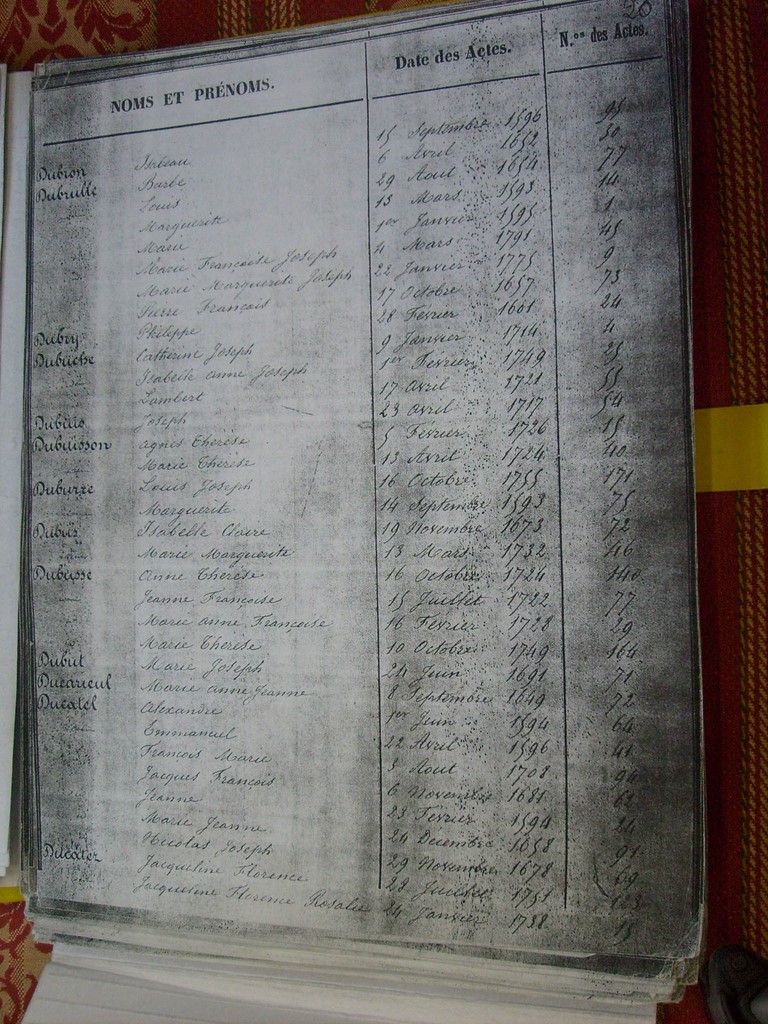 20
NOMS ET PRÉNOMS. Date des Actes. N.os des Actes.
Dubron Isabeau 15 Septembre 1596 95
Dubrulle Barbe 6 Avril 1652 50
Louis 29 Aout 1654 77
Marguerite 13 Mars 1593 14
Marie 1er Janvier 1595 1
Marie Françoise Joseph 4 Mars 1791 45
Marie Marguerite Joseph 22 Janvier 1775 9
Pierre François 17 Octobre 1657 73
Dubry Philippe 28 Février 1601 24
Dubuche Catherine Joseph 9 Janvier 1714 4
Isabelle Anne Joseph 1er Février 1749 25
Lambert 17 Avril 1721 55
Dubuis Joseph 23 Avril 1717 54
Dubuisson Agnès Thérèse 5 Février 1726 15
Marie Thérèse 13 Avril 1724 40
Duburre Louis Joseph 16 Octobre 1755 171
Marguerite 14 Septembre 1593 75
Dubus Isabelle Claire 19 Novembre 1673 72
Marie Marguerite 13 Mars 1732 46
Dubusse Anne Thérèse 16 Octobre 1724 140
Jeanne Françoise 15 Juillet 1722 77
Marie Anne Françoise 16 Février 1728 29
Marie Thérèse 10 Octobre 1749 164
Dubut Marie Joseph 24 Juin 1691 71
Ducarieul Marie Anne Jeanne 8 Septembre 1649 72
Ducatel Alexandre 1er Juin 1594 64
Emmanuel 22 Avril 1596 41
François Marie 3 Aout 1708 94
Jacques François 6 Novembre 1681 62
Jeanne 23 Février 1594 24
Marie Jeanne 24 Décembre 1658 91
Nicolas Joseph 29 Novembre 1678 69
Ducatez Jacqueline Florence 28 Juillet 1751 123
Jacqueline Florence Rosalie 24 Janvier 1758 15